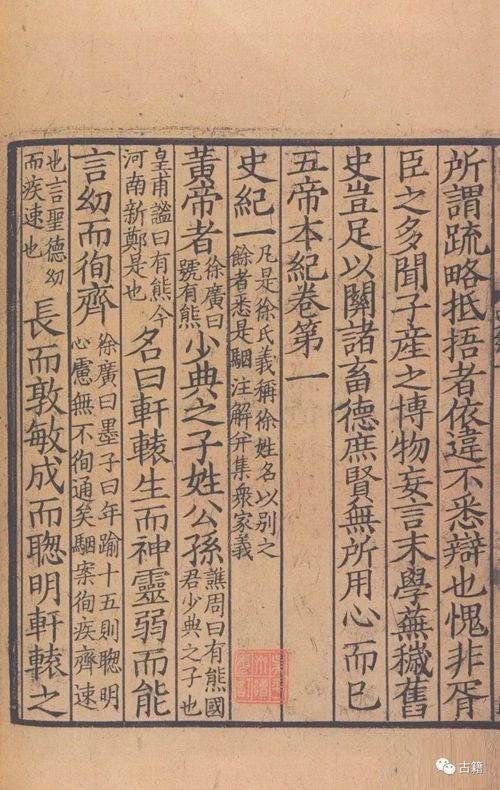 所謂踈略抵捂者依違不悉辯也愧非胥
臣之多聞子産之博物妄言末學蕪穢舊
史豈足以關諸畜德庶賢無所用心而已
五帝本紀卷第一
史紀一凡是徐氏義稱徐姓名以別之餘者悉是駰注解并集衆家義
黄帝者徐廣曰號有熊少典之子姓公孫譙周曰有熊國君少典之子也
皇甫謐曰有熊今河南新鄭是也名曰軒轅生而神靈弱而能
言幼而徇齊徐廣曰墨子曰年踰十五則聦明心慮無不徇通矣駰案徇疾齊速
也言聖德幼而疾速也長而敦敏成而聦明軒轅之
古籍